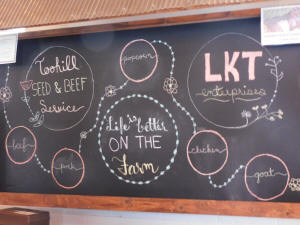 Toohill
SEED & BEEF
Service
popcorn
LKT
enterprises
Life is better
ON THE
Farm
beef
pork
chicken
goat